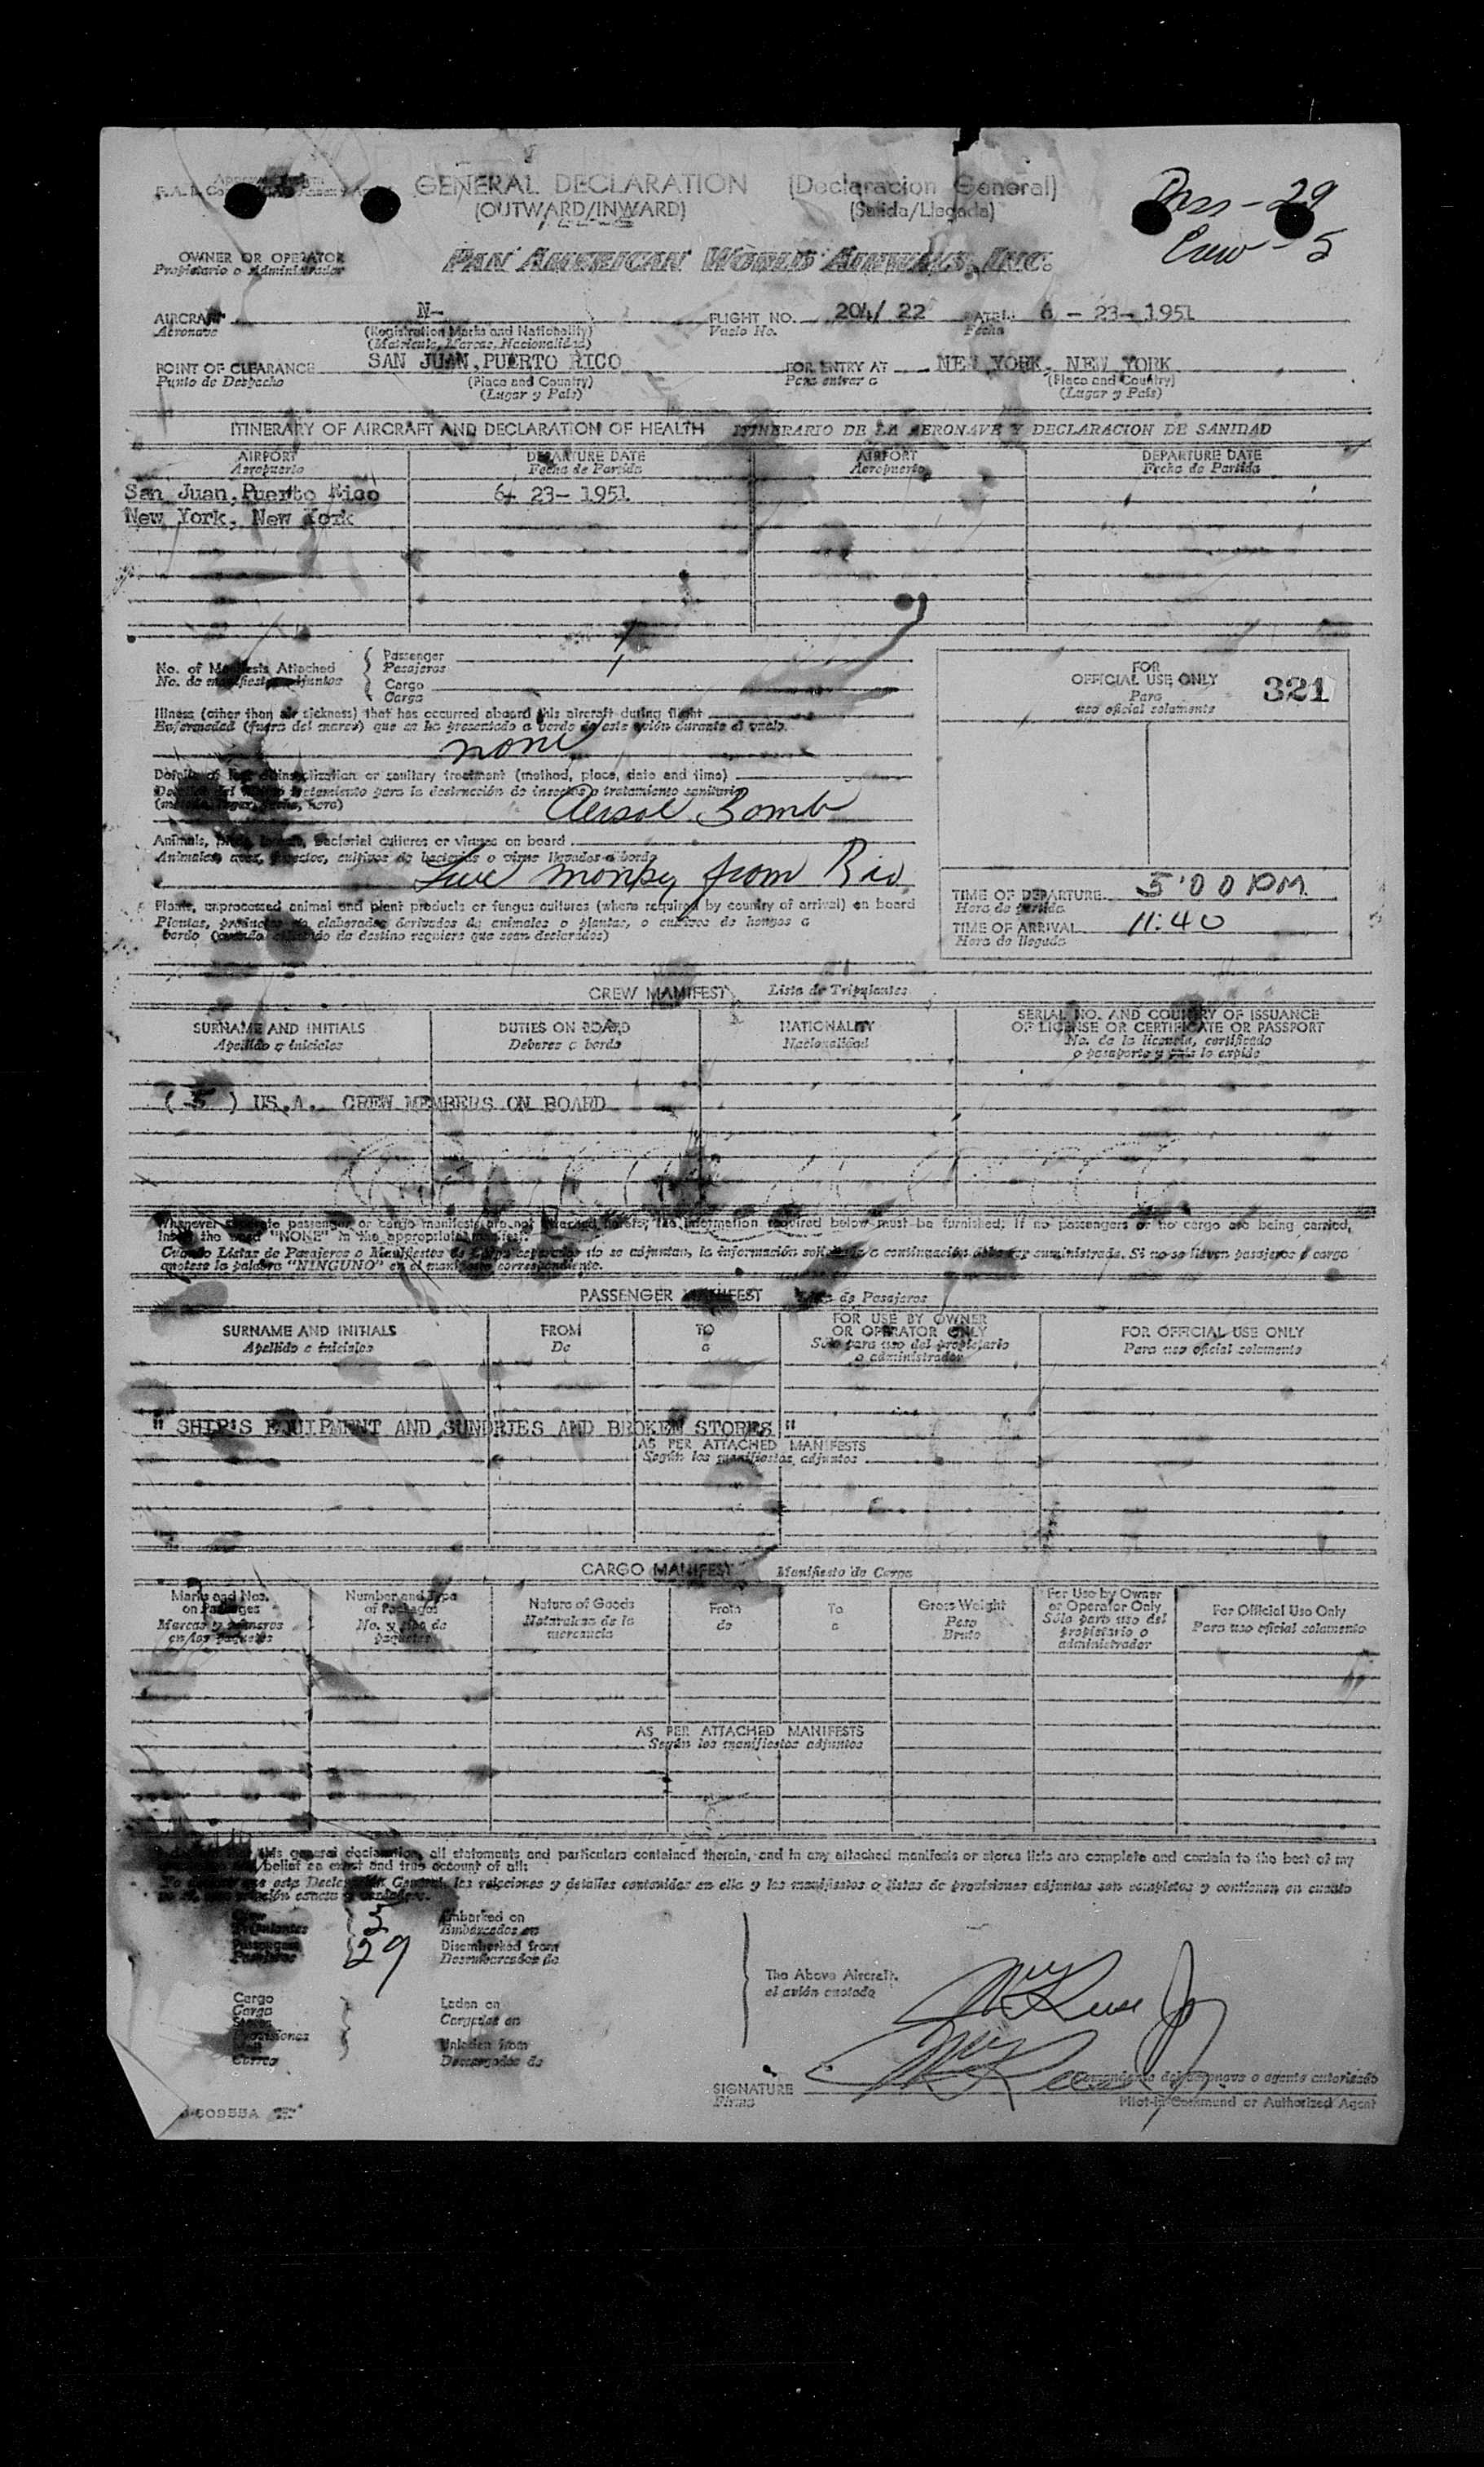 GENERAL DECLARATION (Declaracion General)
(OUTWARD/INWARD) (Salida/Llegada)
Pass - 29
Crew - 5
OWNER OR OPERATOR
Propietario o Administrador
PAN AMERICAN WORLD AIRWAYS, INC.
AIRCRAFT N- FLIGHT NO. 204/ 22 DATE 6 - 23- 1951
Aeronave (Registration Marks and Nationality) Vuelo No. Fecha
(Matricula, Marcas, Nacionalidad)
POINT OF CLEARANCE SAN JUAN, PUERTO RICO FOR ENTRY AT NEW YORK, NEW YORK
Punto de Despacho (Place and Country) Para entrar a (Place and Country)
(Lugar y Pais) (Lugar y Pais)
ITINERARY OF AIRCRAFT AND DECLARATION OF HEALTH ITINERARIO DE LA AERONAVE Y DECLARACION DE SANIDAD
AIRPORT DEPARTURE DATE AIRPORT DEPARTURE DATE
Aeropuerto Fecha de Partida Aeropuerto Fecha de Partida
San Juan, Puerto Rico 6- 23- 1951
New York, New York
No. of Manifests Attached Passenger 1
No. de manifiestos adjuntos Pasajeros
Cargo 1
Carga
FOR
OFFICIAL USE ONLY
Para
uso oficial solamente
321
Illness (other than air sickness) that has occurred aboard this aircraft during flight
Enfermedad (fuera del mareo) que se ha presentado a bordo de este avión durante el vuelo.
none
Details of last disinsectization or sanitary treatment (method, place, date and time)
Detalles del último tratamiento para la destrucción de insectos o tratamiento sanitario
(método, lugar, fecha, hora)
Aersol Bomb
Animals, birds, insects, bacterial cultures or viruses on board
Animales, aves, insectos, cultivos de bacterias o virus llevados a bordo
Live monkey from Rio
Plants, unprocessed animal and plant products or fungus cultures (where required by country of arrival) on board
Plantas, productos no elaborados derivados de animales o plantas, o cultivos de hongos a
bordo (cuando el estado de destino requiere que sean declarados)
TIME OF DEPARTURE 5:00 PM
Hora de partida
TIME OF ARRIVAL 11:40
Hora de llegada
CREW MANIFEST Lista de Tripulantes
SURNAME AND INITIALS DUTIES ON BOARD NATIONALITY SERIAL NO. AND COUNTRY OF ISSUANCE
OF LICENSE OR CERTIFICATE OR PASSPORT
Apellido e iniciales Deberes a bordo Nacionalidad No. de la licencia, certificado
o pasaporte y país lo expide
( 5 ) US.A. CREW MEMBERS ON BOARD
Whenever separate passenger or cargo manifests are not attached hereto, the information required below must be furnished; if no passengers or no cargo are being carried,
insert the word "NONE" in the appropriate manifest.
Cuando Listas de Pasajeros o Manifiestos de Carga separados no se adjuntan, la información solicitada a continuación debe ser suministrada. Si no se llevan pasajeros o carga
anotese la palabra "NINGUNO" en el manifiesto correspondiente.
PASSENGER MANIFEST Lista de Pasajeros
SURNAME AND INITIALS FROM TO FOR USE BY OWNER
OR OPERATOR ONLY FOR OFFICIAL USE ONLY
Apellido e iniciales De a Sólo para uso del propietario
o administrador Para uso oficial solamente
" SHIP'S EQUIPMENT AND SUNDRIES AND BROKEN STORES "
AS PER ATTACHED MANIFESTS
Según los manifiestos adjuntos
CARGO MANIFEST Manifiesto de Carga
Marks and Nos.
on Packages
Marcas y números
en los paquetes
Number and Type
of Packages
No. y tipo de
paquetes
Nature of Goods
Naturaleza de la
mercancia
From
de
To
a
Gross Weight
Peso
Bruto
For Use by Owner
or Operator Only
Sólo para uso del
propietario o
administrador
For Official Use Only
Para uso oficial solamente
AS PER ATTACHED MANIFESTS
Según los manifiestos adjuntos
this general declaration, all statements and particulars contained therein, and in any attached manifests or stores lists are complete and contain to the best of my
belief an exact and true account of all:
que esta Declaración General, las relaciones y detalles contenidas en ella y los manifiestos o listas de provisiones adjuntas son completos y contienen en cuanto
Crew 5 Embarked on
Tripulantes Embarcados en
Passengers 29 Disembarked from
Pasajeros Desembarcados de
The Above Aircraft.
el avión anotado
Cargo
Carga
Stores
Provisiones
Mail
Correo
Laden on
Cargados en
Unladen from
Descargados de
SIGNATURE
Firma
Comandante de aeronave o agente autorizado
Pilot-in-Command or Authorized Agent